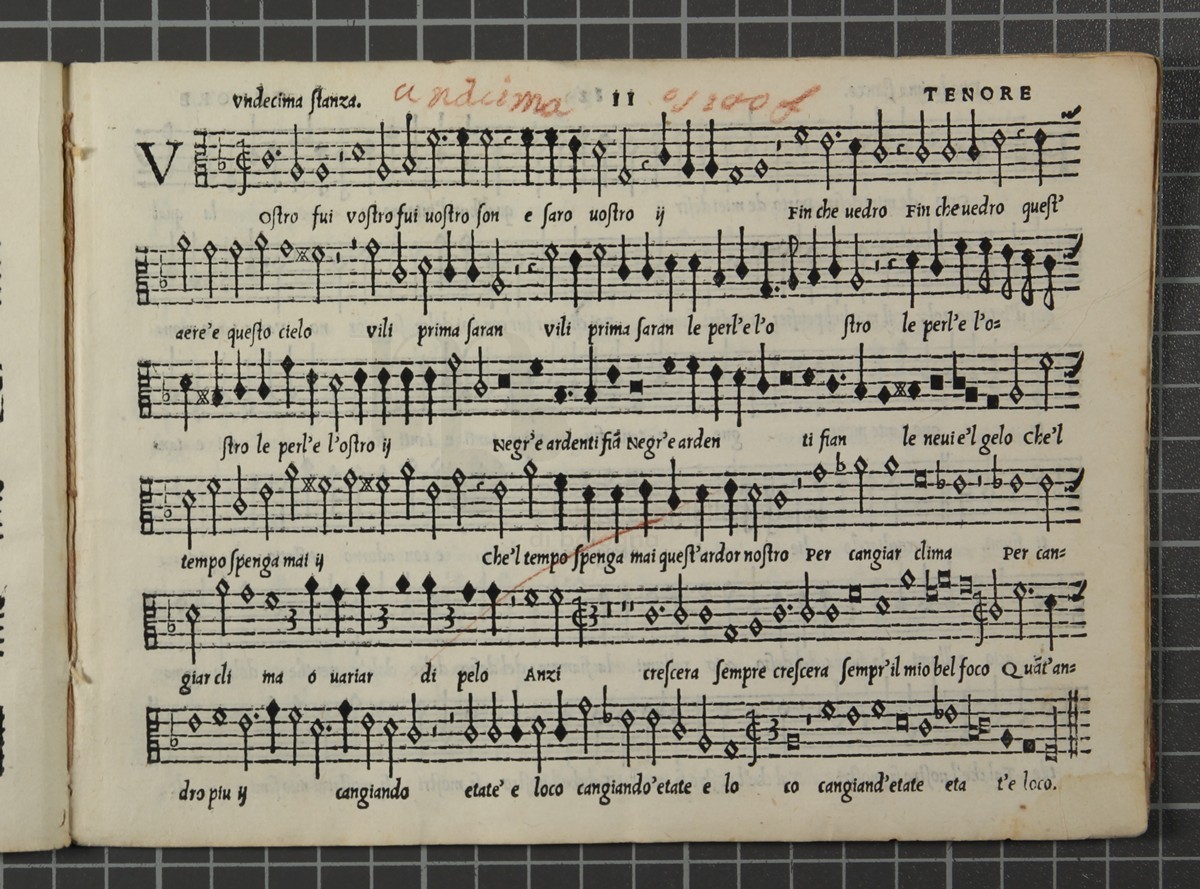 vndecima stanza. undecima 11 TENORE
V
Ostro fui vostro fui uostro son e saro uostro ij Fin che uedro Fin che uedro quest'
aere'e questo cielo vili prima saran vili prima saran le perl'e l'o stro le perl'e l'o=
stro le perl'e l'ostro ij Negr'e ardenti fiā Negr'e arden ti fian le neui e'l gelo Che'l
tempo spenga mai ij Che'l tempo spenga mai quest'ardor nostro Per cangiar clima Per can=
giar cli ma o uariar di pelo Anzi crescera sempre crescera sempr'il mio bel foco Quāt'an=
dro piu ij cangiando etate' e loco cangiando'etate e lo co cangiand'etate eta t'e loco.